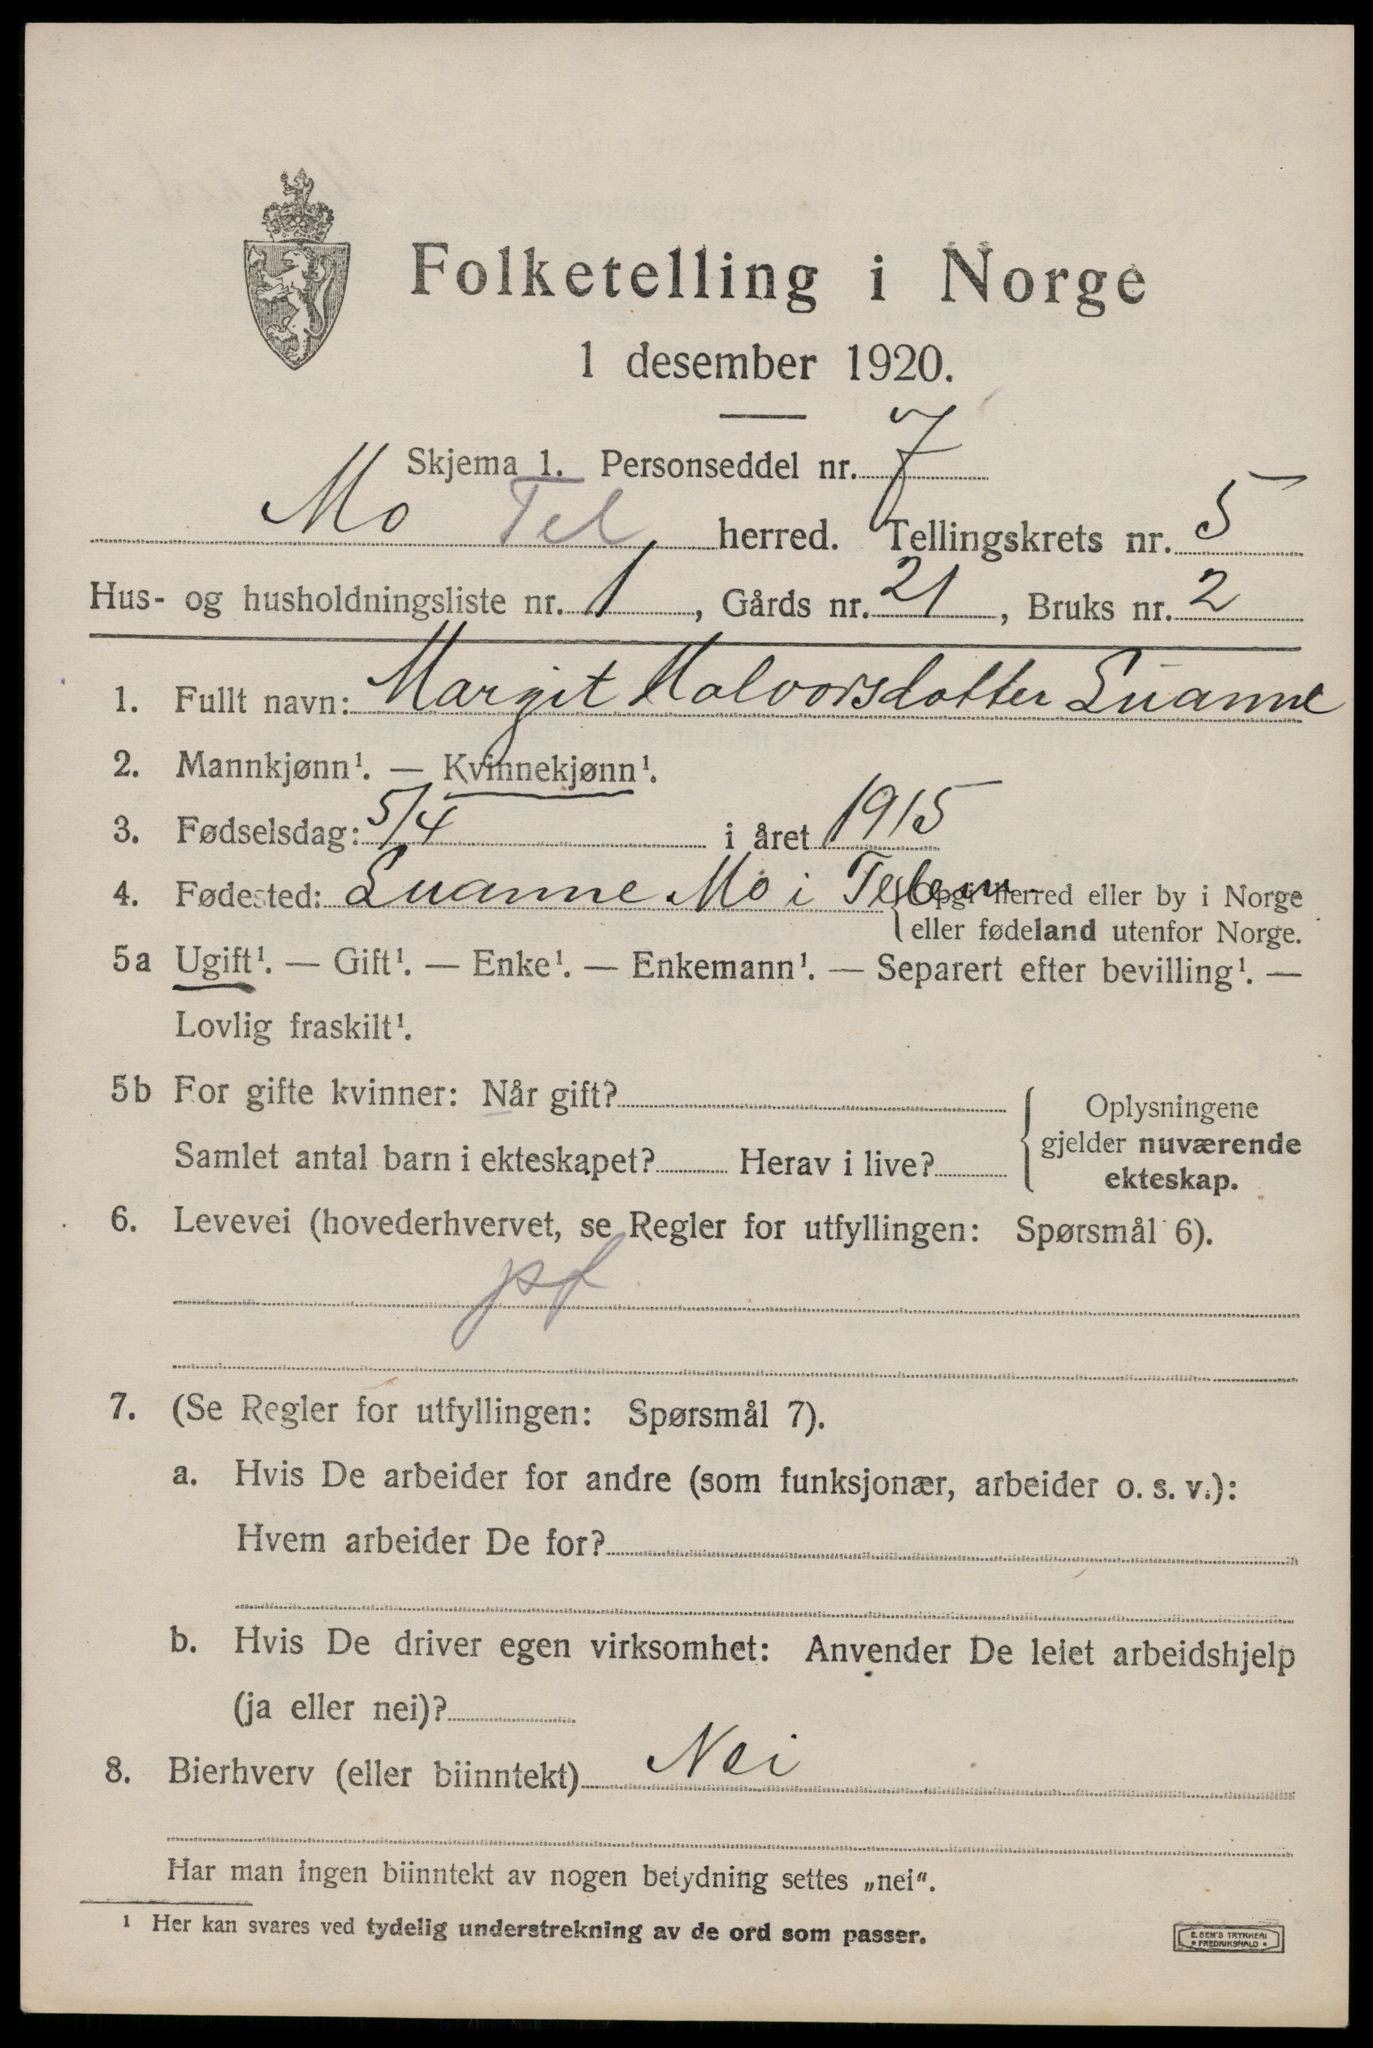 Folketelling i Norge
1 desember 1920.
Skjema 1. Personseddel nr. 7
Mo Tel herred. Tellingskrets nr. 5
Hus- og husholdningsliste nr. 1, Gårds nr. 21, Bruks nr. 2
1. Fullt navn: Margit Halvorsdotter Luanne
2. Mannkjønn¹. — Kvinnekjønn¹.
3. Fødselsdag: 5/4 i året 1915
4. Fødested: Luanne Mo i Telem- {Opgi herred eller by i Norge
eller fødeland utenfor Norge.
5a Ugift¹. — Gift¹. — Enke¹. — Enkemann¹. — Separert efter bevilling¹. —
Lovlig fraskilt¹.
5b For gifte kvinner: Når gift?
Samlet antal barn i ekteskapet? Herav i live?
Oplysningene
gjelder nuværende
ekteskap.
6. Levevei (hovederhvervet, se Regler for utfyllingen: Spørsmål 6).
pf
7. (Se Regler for utfyllingen: Spørsmål 7).
a. Hvis De arbeider for andre (som funksjonær, arbeider o. s. v.):
Hvem arbeider De for?
b. Hvis De driver egen virksomhet: Anvender De leiet arbeidshjelp
(ja eller nei)?
8. Bierhverv (eller biinntekt) Nei
Har man ingen biinntekt av nogen betydning settes „nei".
¹ Her kan svares ved tydelig understrekning av de ord som passer.
E. SEM'S TRYKKERI
• FREDRIKSHALD •